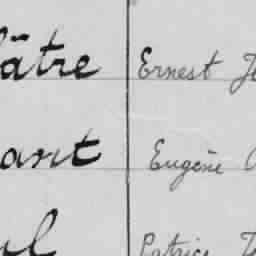 âtre Ernest Je
ant Eugène
ul Patrice